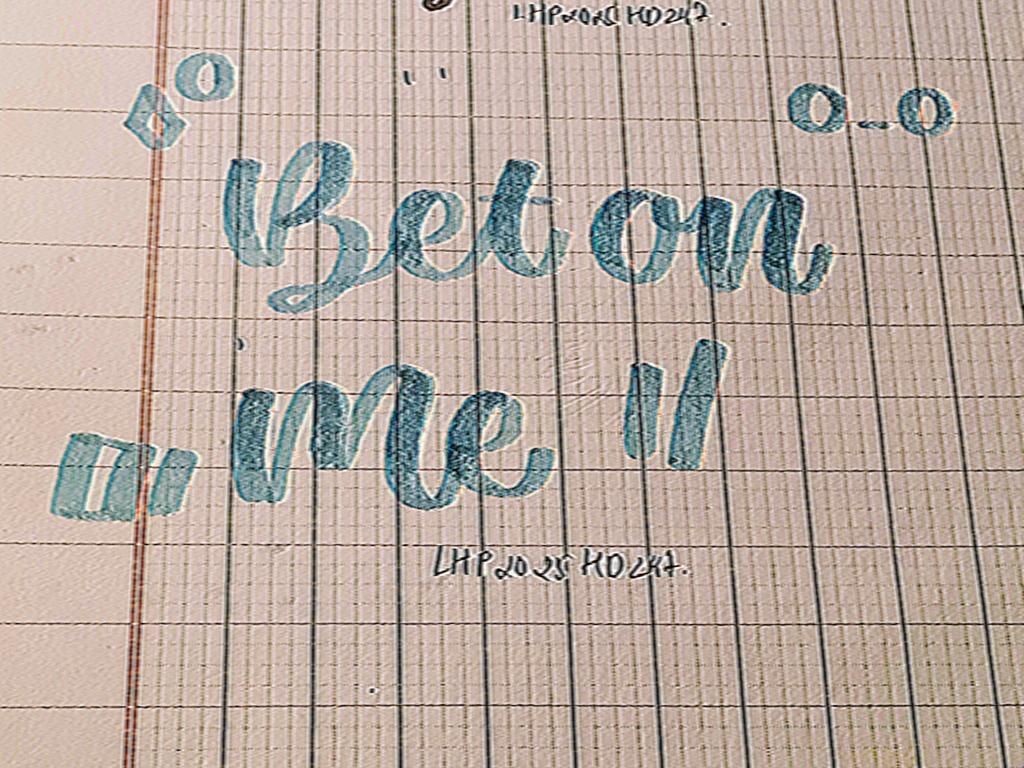 LHP2025HD247.
Bet on
Me
LHP2025HD247.